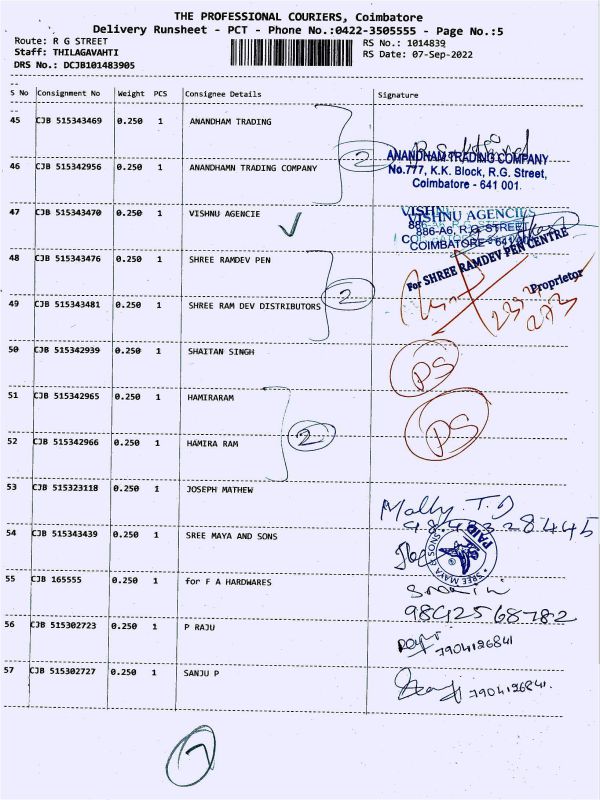 THE PROFESSIONAL COURIERS, Coimbatore
Delivery Runsheet - PCT - Phone No.:0422-3505555 - Page No.:5
Route: R G STREET RS No.: 1014839
Staff: THILAGAVAHTI RS Date: 07-Sep-2022
DRS No.: DCJB101483905
S No Consignment No Weight PCS Consignee Details Signature
45 CJB 515343469 0.250 1 ANANDHAM TRADING
46 CJB 515342956 0.250 1 ANANDHAMN TRADING COMPANY
2
ANANDHAM TRADING COMPANY
No.777, K.K. Block, R.G. Street,
Coimbatore - 641 001.
47 CJB 515343470 0.250 1 VISHNU AGENCIE
VISHNU AGENCIES
886-A6, R.G STREET
COIMBATORE - 641 001
48 CJB 515343476 0.250 1 SHREE RAMDEV PEN
For SHREE RAMDEV PEN CENTRE
Proprietor
2
49 CJB 515343481 0.250 1 SHREE RAM DEV DISTRIBUTORS
50 CJB 515342939 0.250 1 SHAITAN SINGH
PS
51 CJB 515342965 0.250 1 HAMIRARAM
PS
52 CJB 515342966 0.250 1 HAMIRA RAM
2
53 CJB 515323118 0.250 1 JOSEPH MATHEW
Molly. T. D
54 CJB 515343439 0.250 1 SREE MAYA AND SONS
SREE MAYA & SONS
PAID
55 CJB 165555 0.250 1 for F A HARDWARES
9842568782
56 CJB 515302723 0.250 1 P RAJU
7904126841
57 CJB 515302727 0.250 1 SANJU P
7904126841.
7